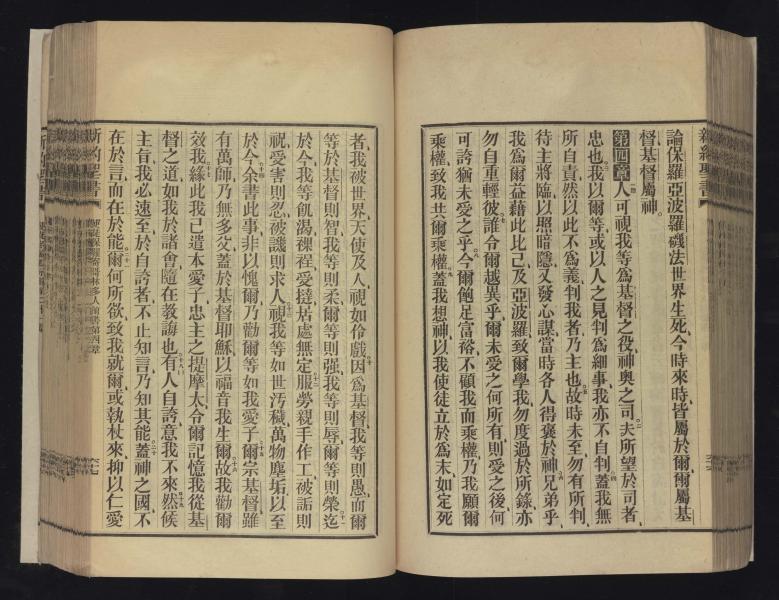 論保羅亞波羅磯法世界生死今時來時皆屬於爾爾屬基
督基督屬神。
第四章人可視我等為基督之役神奧之司夫所望於司者
忠也我以爾等或以人之見判為細事我亦不自判蓋我無
所自責然以此不為義判我者乃主也故時未至勿有所判
待主將臨以照暗隱又發心謀當時各人得褒於神兄弟乎
我為爾益藉此比己及亞波羅致爾學我勿度過於所錄亦
勿自重輕彼誰令爾越異乎爾未受之何所有則受之後何
可誇猶未受之乎今爾飽足富裕不顧我而乘權乃我願爾
乘權致我共爾乘權蓋我想神以我使徒立於為末如定死
者我被世界天使及人視如伶戲因為基督我等則愚而爾
等於基督則智我等則柔爾等則强我等則辱爾等則榮迄
於今我等飢渴裸裎受撻居處無定服勞親手作工被詬則
祝受害則忍被譏則求人視我等如世汚穢萬物塵垢以至
於今余書此事非以愧爾乃勸爾等如我愛子爾宗基督雖
有萬師乃無多父蓋於基督耶穌以福音我生爾故我勸爾
效我緣此我已遣本愛子忠主之提摩太令爾記憶我從基
督之道如我於諸會隨在教誨也有人自誇意我不來然候
主旨我必速至於自誇者不止知言乃知其能蓋神之國不
在於言而在於能爾何所欲致我就爾或執杖來抑以仁愛
新約聖書